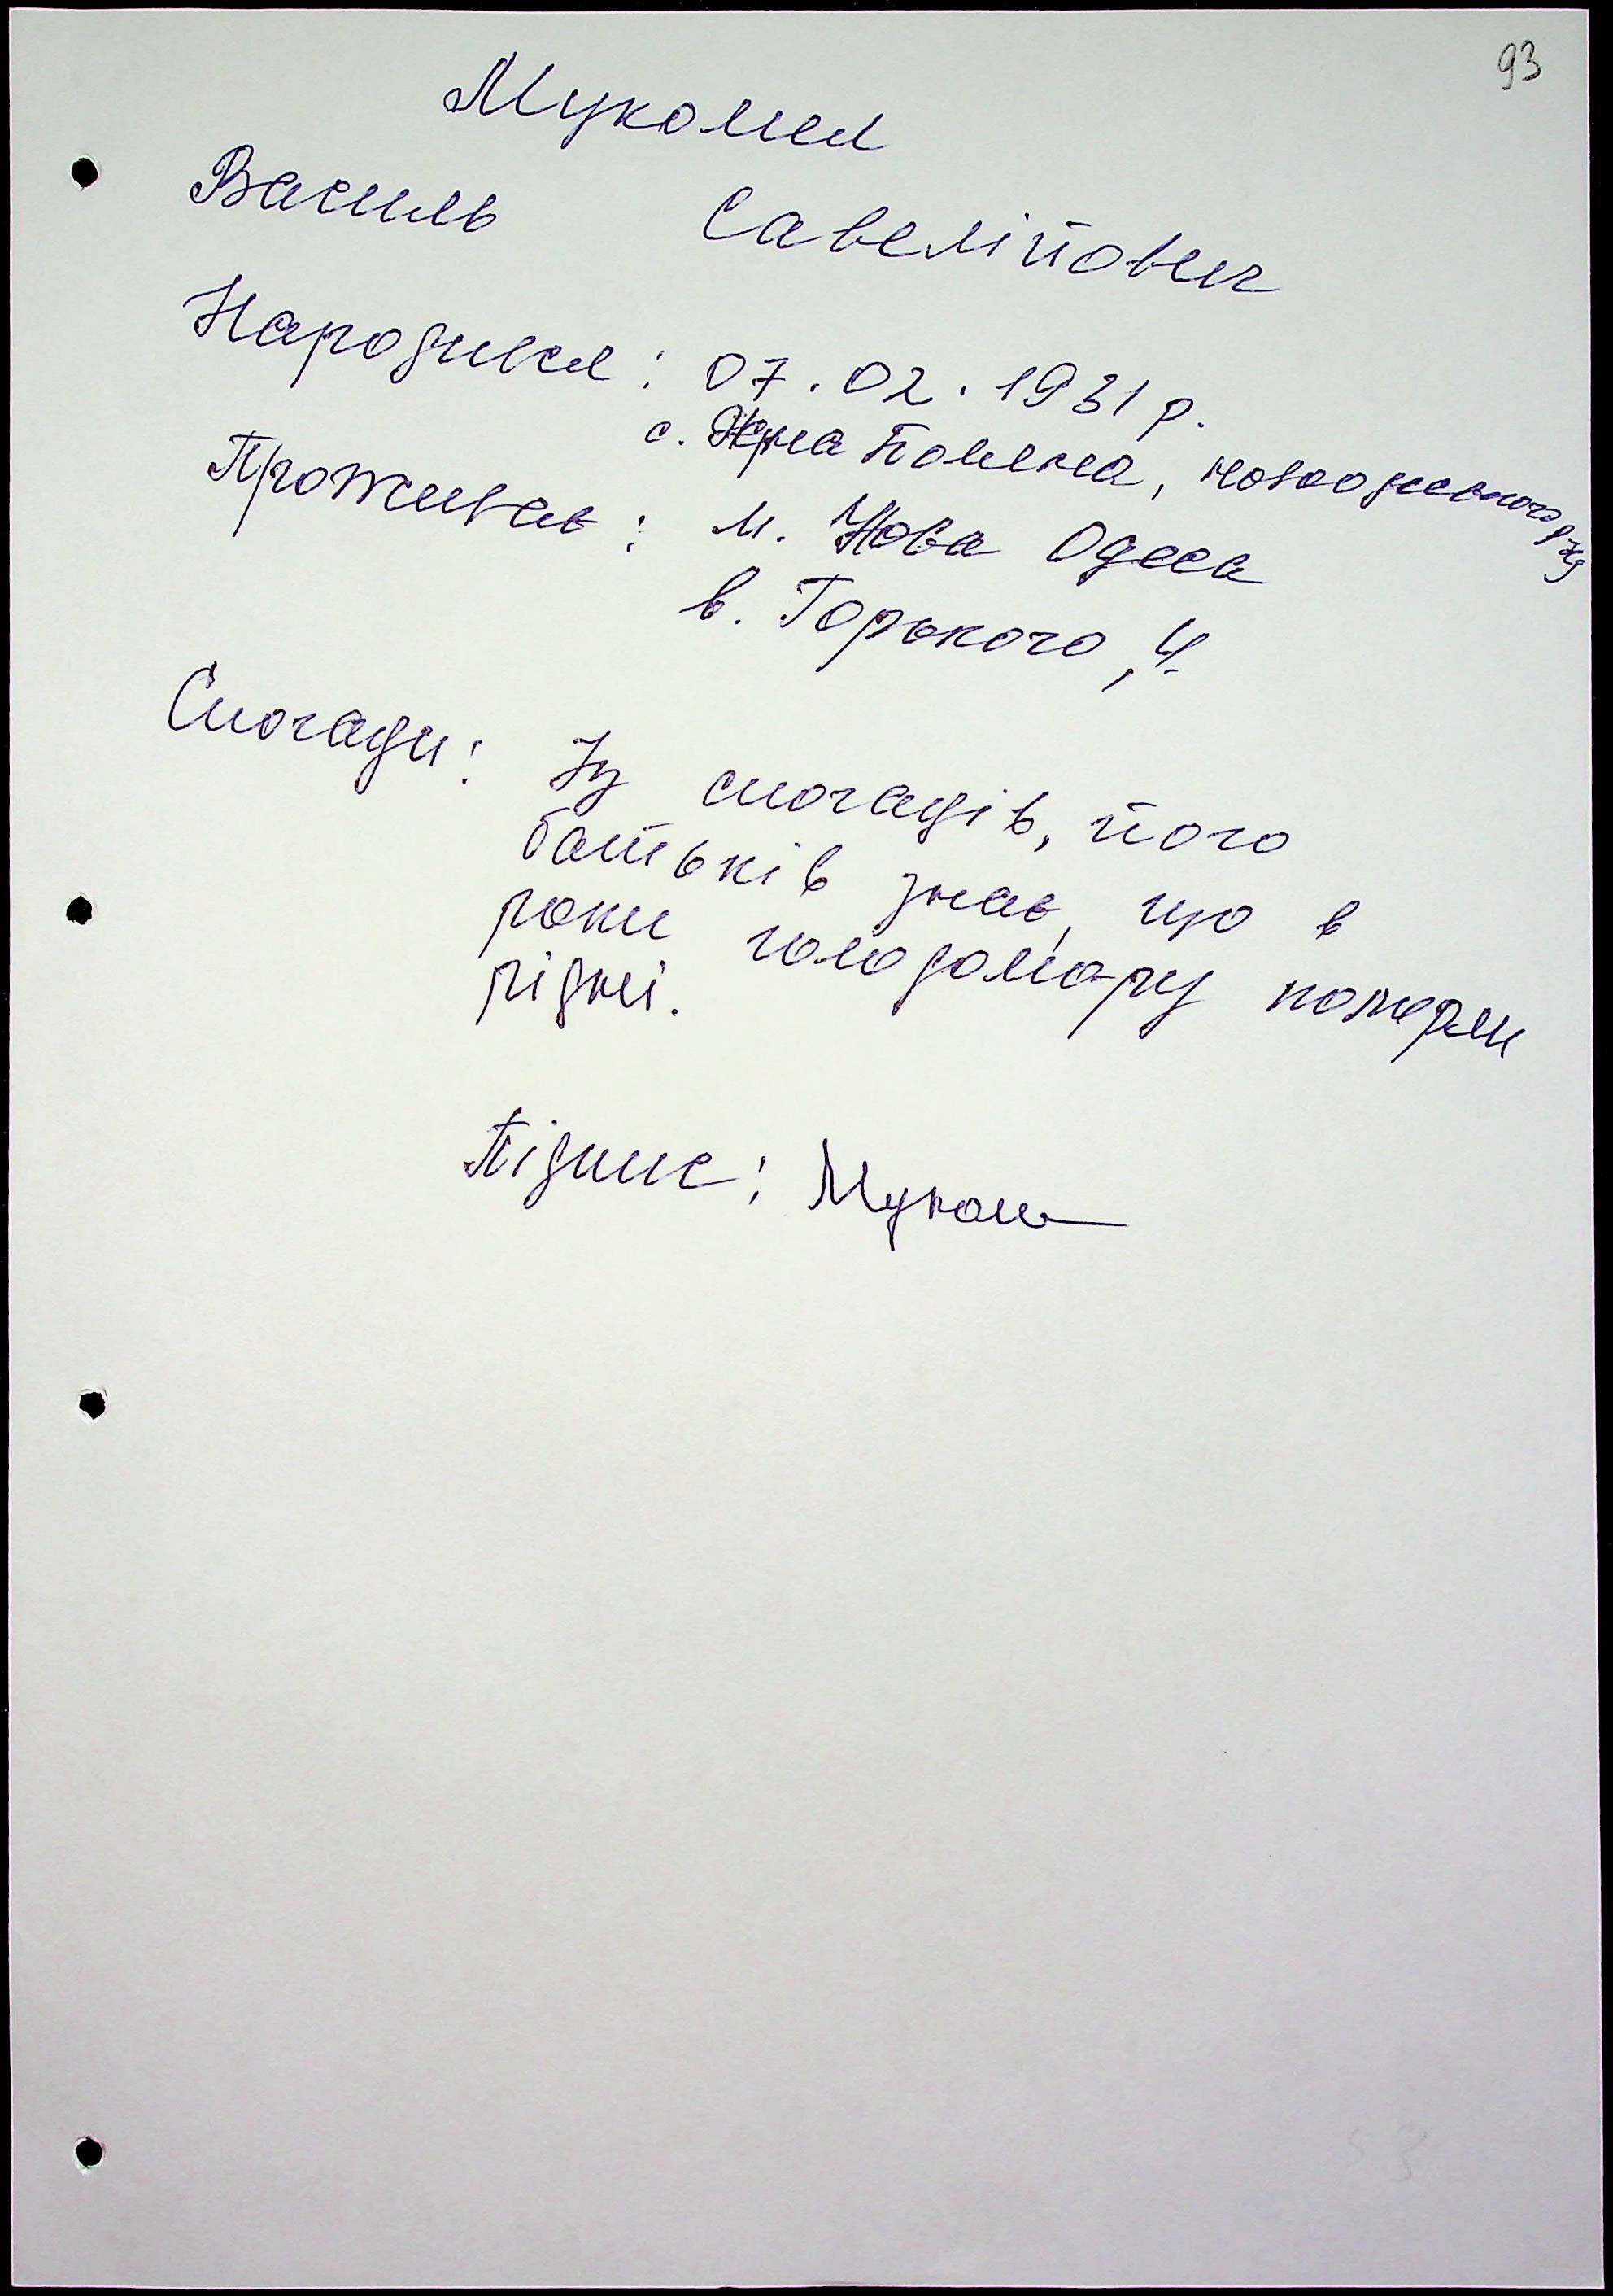 93
Мукомел
Василь Савелійович
Народився: 07.02.1931 р.
с. Поляна, новоодеського р-ну
Проживає: м. Нова Одеса
в. Горького, 4.
Спогади: Із спогадів, його
батьків знає, що в
роки голодомору померли
рідні.
Підпис: Муком